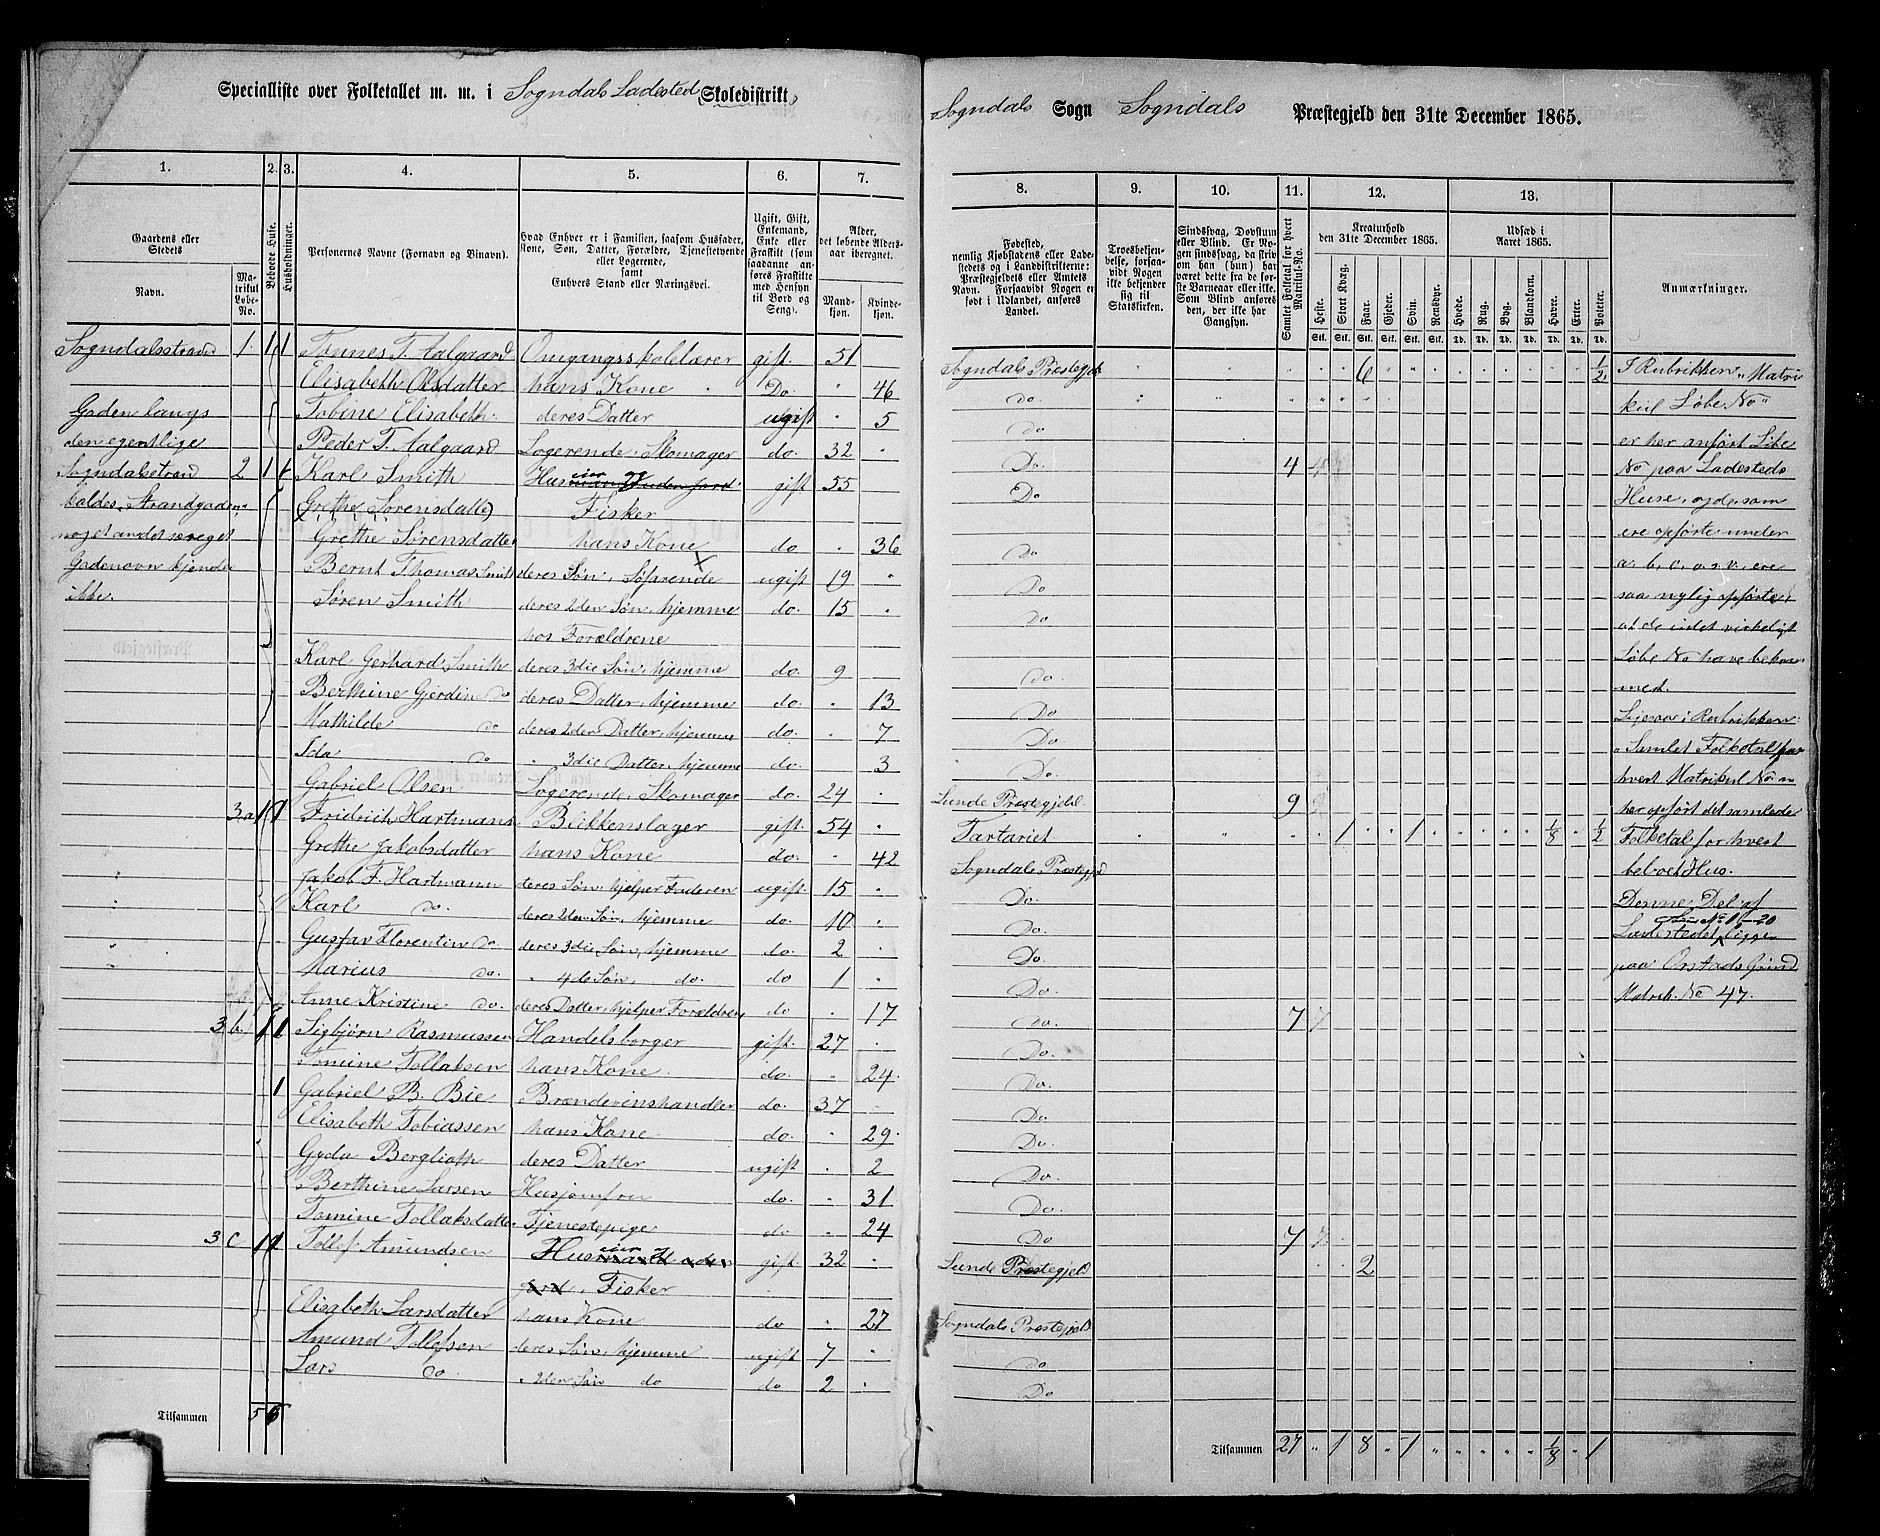 Specialliste over Folketallet m. m. i Sogndals Ladested Skoledistrikt,
1. 2. 3. 4. 5. 6. 7.
Gaardens eller Stedets
Navn.
Matrikul Løbe-No.
Beboede Huse.
Husholdninger.
Personernes Navne (Fornavn og Binavn).
Hvad Enhver er i Familien, saasom Husfader, Kone, Søn, Datter, Forældre, Tjenestetyende eller Logerende, samt Enhvers Stand eller Næringsvei.
Ugift, Gift, Enkemand, Enke eller Fraskilt (som saadanne anføres Fraskilte med Hensyn til Bord og Seng).
Alder, det løbende Aldersaar iberegnet.
Mandkjøn.
Kvindekjøn.
Sogndalsstrand 1 1 1 Tønnes T. Aalgaard Omgangsskolelærer gift 51
Elisabeth Olsdatter hans Kone Do 46
Gaden langs Tobine Elisabeth deres Datter ugift 5
den egentlige Peder T. Aalgaard Logerende, Skomager do. 32
Sogndalstrand 2 1 1 Karl Smith Huseier og gift 55
kaldes Strandgaden (Grethe Sørensdatter) Fisker
noget andet særeget Grethe Sørensdatter hans Kone do 36
Gadenavn kjendes Bernt Thomas Smith deres Søn, Søfarende ugift 19
ikke. Søren Smith deres 2den Søn, hjemme do. 15
hos Forældrene
Karl Gerhard Smith deres 3die Søn, hjemme do. 9
Berthine Gjerdine do deres Datter, hjemme do. 13
Mathilde do deres 2den Datter, hjemme do. 7
Ida do " 3die Datter, hjemme do. 3
Gabriel Olsen Logerende, Skomager do. 24
3 a 1 1 Fridrich Hartmann Blikkenslager gift 54
Grethe Jakobsdatter hans Kone do. 42
Jakob F. Hartmann deres Søn, hjelper Faderen ugift 15
Karl do. deres 2den Søn, hjemme do. 10
Gustav Florentin do deres 3die Søn, hjemme do. 2
Marius do. " 4de Søn, do. do 1
Anne Kristine do. deres Datter, hjelper Forældrene do 17
3 b. 1 1 Sigbjørn Rasmussen Handelsborger gift 27
Tomine Tollaksen hans Kone do. 24
1 Gabriel B. Bie Brændevinshandler do. 37
Elisabeth Tobiassen hans Kone do. 29
Gyda Berglioth deres Datter ugift 2
Berthine Larsen Husjomfru do. 31
Tomine Tollaksdatter Tjenestepige do 24
3 c 1 1 Tollef Amundsen Huseier gift 32
Fisker
Elisabeth Larsdatter hans Kone do 27
Amund Tollefsen deres Søn, hjemme ugift 7
Lars do " 2den Søn do do 2
Tilsammen 5 6
Sogndals Sogn Sogndals Præstegjeld den 31te December 1865.
8. 9. 10. 11. 12. 13.
Fødested, nemlig Kjøbstadens eller Ladestedets og i Landdistrikterne: Præstegjeldets eller Amtets Navn. Forsaavidt Nogen er født i Udlandet, anføres Landet.
Troesbekjendelse, forsaavidt Nogen ikke bekjender sig til Statskirken.
Sindssvag, Døvstum eller Blind. Er Nogen sindssvag, da skrives om han (hun) har været dette fra de første Barneaar eller ikke. Som Blind anføres den, der ikke har Gangsyn.
Samlet Folketal for hvert Matrikul-No.
Kreaturhold den 31te December 1865.
Heste. Stort Kvæg. Faar. Gjeder. Svin. Rensdyr.
Udsæd i Aaret 1865.
Hvede. Rug. Byg. Blandkorn. Havre. Erter. Poteter.
Anmærkninger.
Sogndals Præstegjeld 6 1/2 I Rubrikken „Matri
do kul Løbe No"
do er her anført
Do. 4 No paa Ladesteds
Do Huse, og de som
ere opførte under
Do a. b. c. o. s. v. ere
Do saa nylig opførte,
Do at de
Løbe No have bekom
Do. med.
Do Rubrikken:
Do „Samlet Folketal for
Do. hvert Matrikul No"
Lunde Præstegjeld. 9 her opført det samlede
Tartariet 1 1 1/8 1/2 Folketal for hvert
Sogndals Præstegjeld beboet Hus.
Do. Denne Del af
Do. Ladestedet ligger
Do. paa Orstads Grund
Do. Matrik. No 47.
Do. 7
Do.
Do.
Do.
Do.
Do.
Do.
Do 7
Lunde Præstegjeld 2
Sogndals Præstegjeld
do
Do
Tilsammen 27 " 1 8 " 1 " " " " " 1/8 " 1